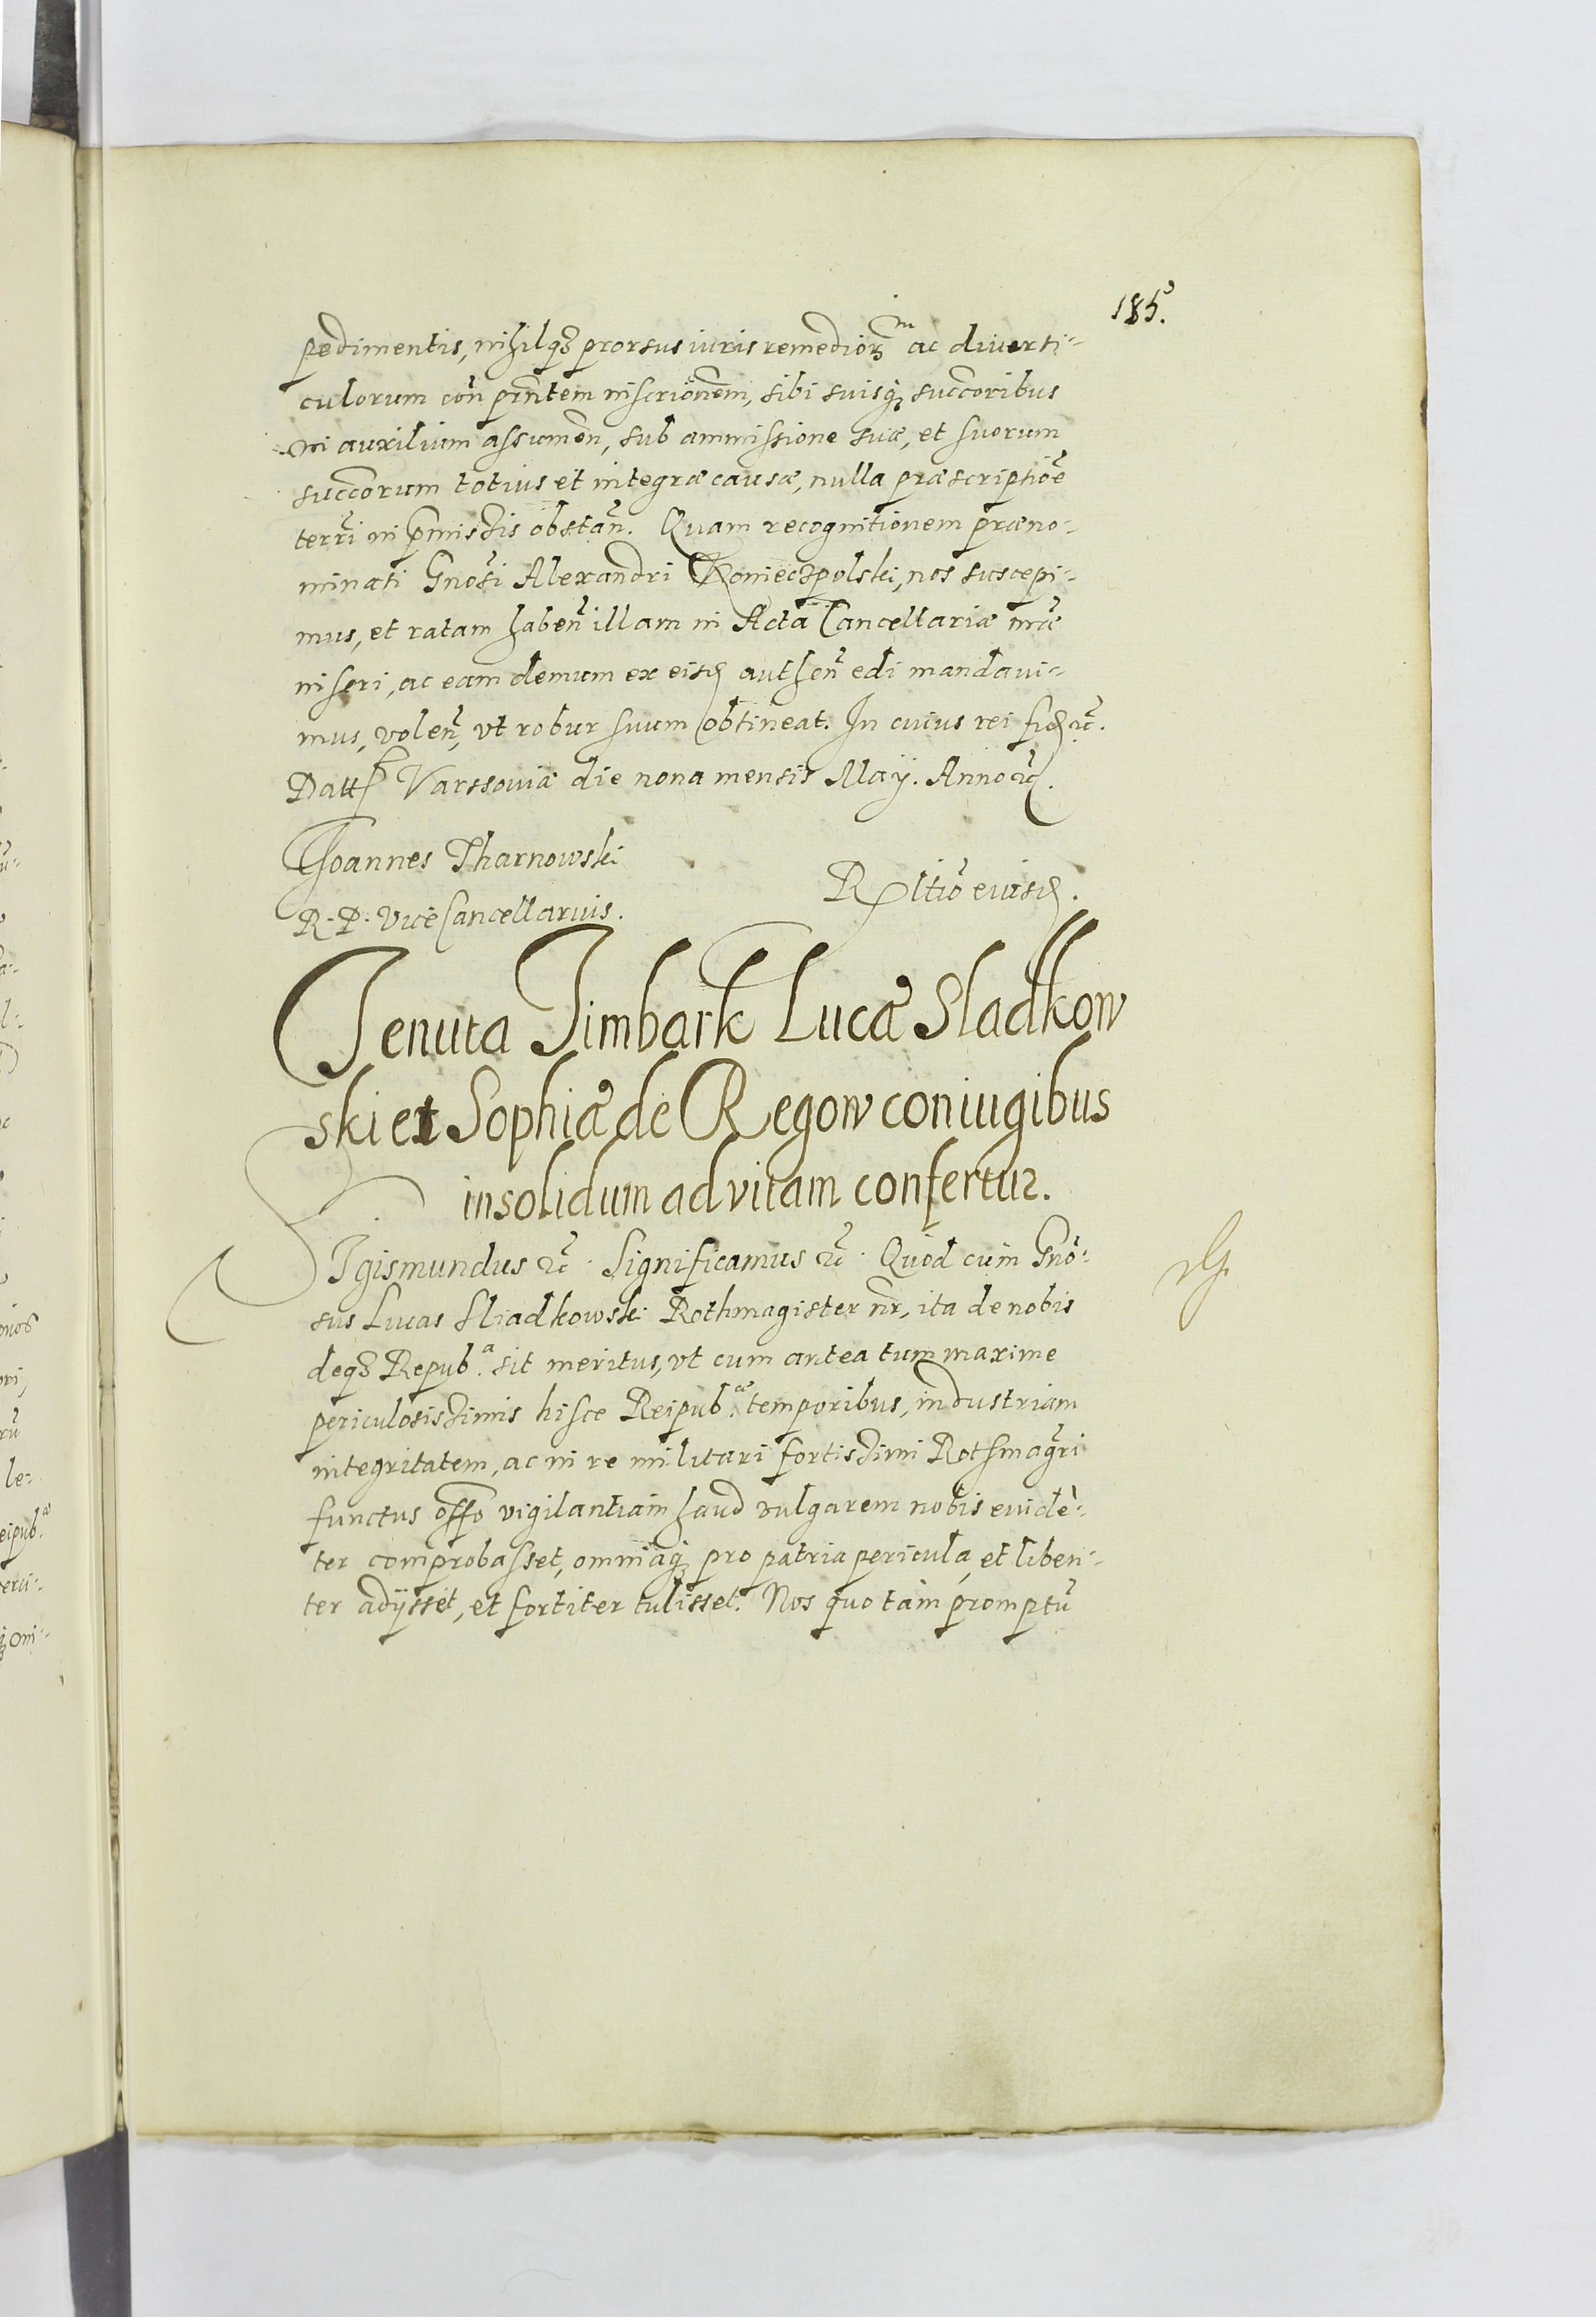 185.
pedimentis, nihilq3 prorsus iuris remediorum ac diuerti-
culorum con̄ prn̄tem inscriōnem, sibi suisq3 succoribus
in auxilium assumen̄, sub ammissione suæ, et suorum
succorum totius et integræ causæ, nulla præscriptiōe
terr̄i in p̄missis obstan̄. Quam recognitionem præno-
minati Gnōsi Alexandri Konieczpolski, nos suscepi-
mus, et ratam haben̄ illam in Acta Cancellariæ nr̄æ
inseri, ac eam demum ex eisd authen̄ edi mandaui-
mus, volen̄, vt robur suum obtineat. In cuius rei fid etc̄.
Datt Varssouiæ die nona mensis May. Anno etc.
Joannes Tharnowski
R. P. ViceCancellarius.
Rltiō eiusd.
Tenuta Timbark Lucæ Sladkow
ski et Sophiæ de Regow coniugibus
insolidum ad vitam confertur.
Sigismundus etc̄. Significamus etc̄. Quod cum Gnō-
sus Lucas Sliadkowski Rothmagister nr̄, ita de nobis
deq3 Repub.a sit meritus, vt cum antea tum maxime
periculosissimis hisce Reipub.æ temporibus, industriam
integritatem, ac in re militari fortissimi Rothmagr̄i
functus offō vigilantiam haud vulgarem nobis euidē-
ter comprobasset, omniaq3 pro patria pericula, et liben-
ter adijsset, et fortiter tulisset. Nos quo tam promptū